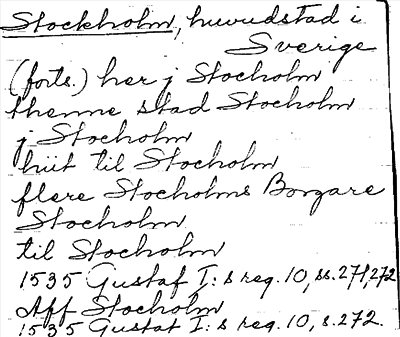 Stockholm, huvudstad i
Sverige
(forts.) her j Stocholm
thenne stad Stocholm
j Stocholm
hiit til Stocholm
flere Stocholms Borgare
Stocholm
til Stocholm
1535 Gustaf I:s reg. 10, ss. 271, 272
Aff Stocholm
1535 Gustaf I:s reg. 10, s. 272.